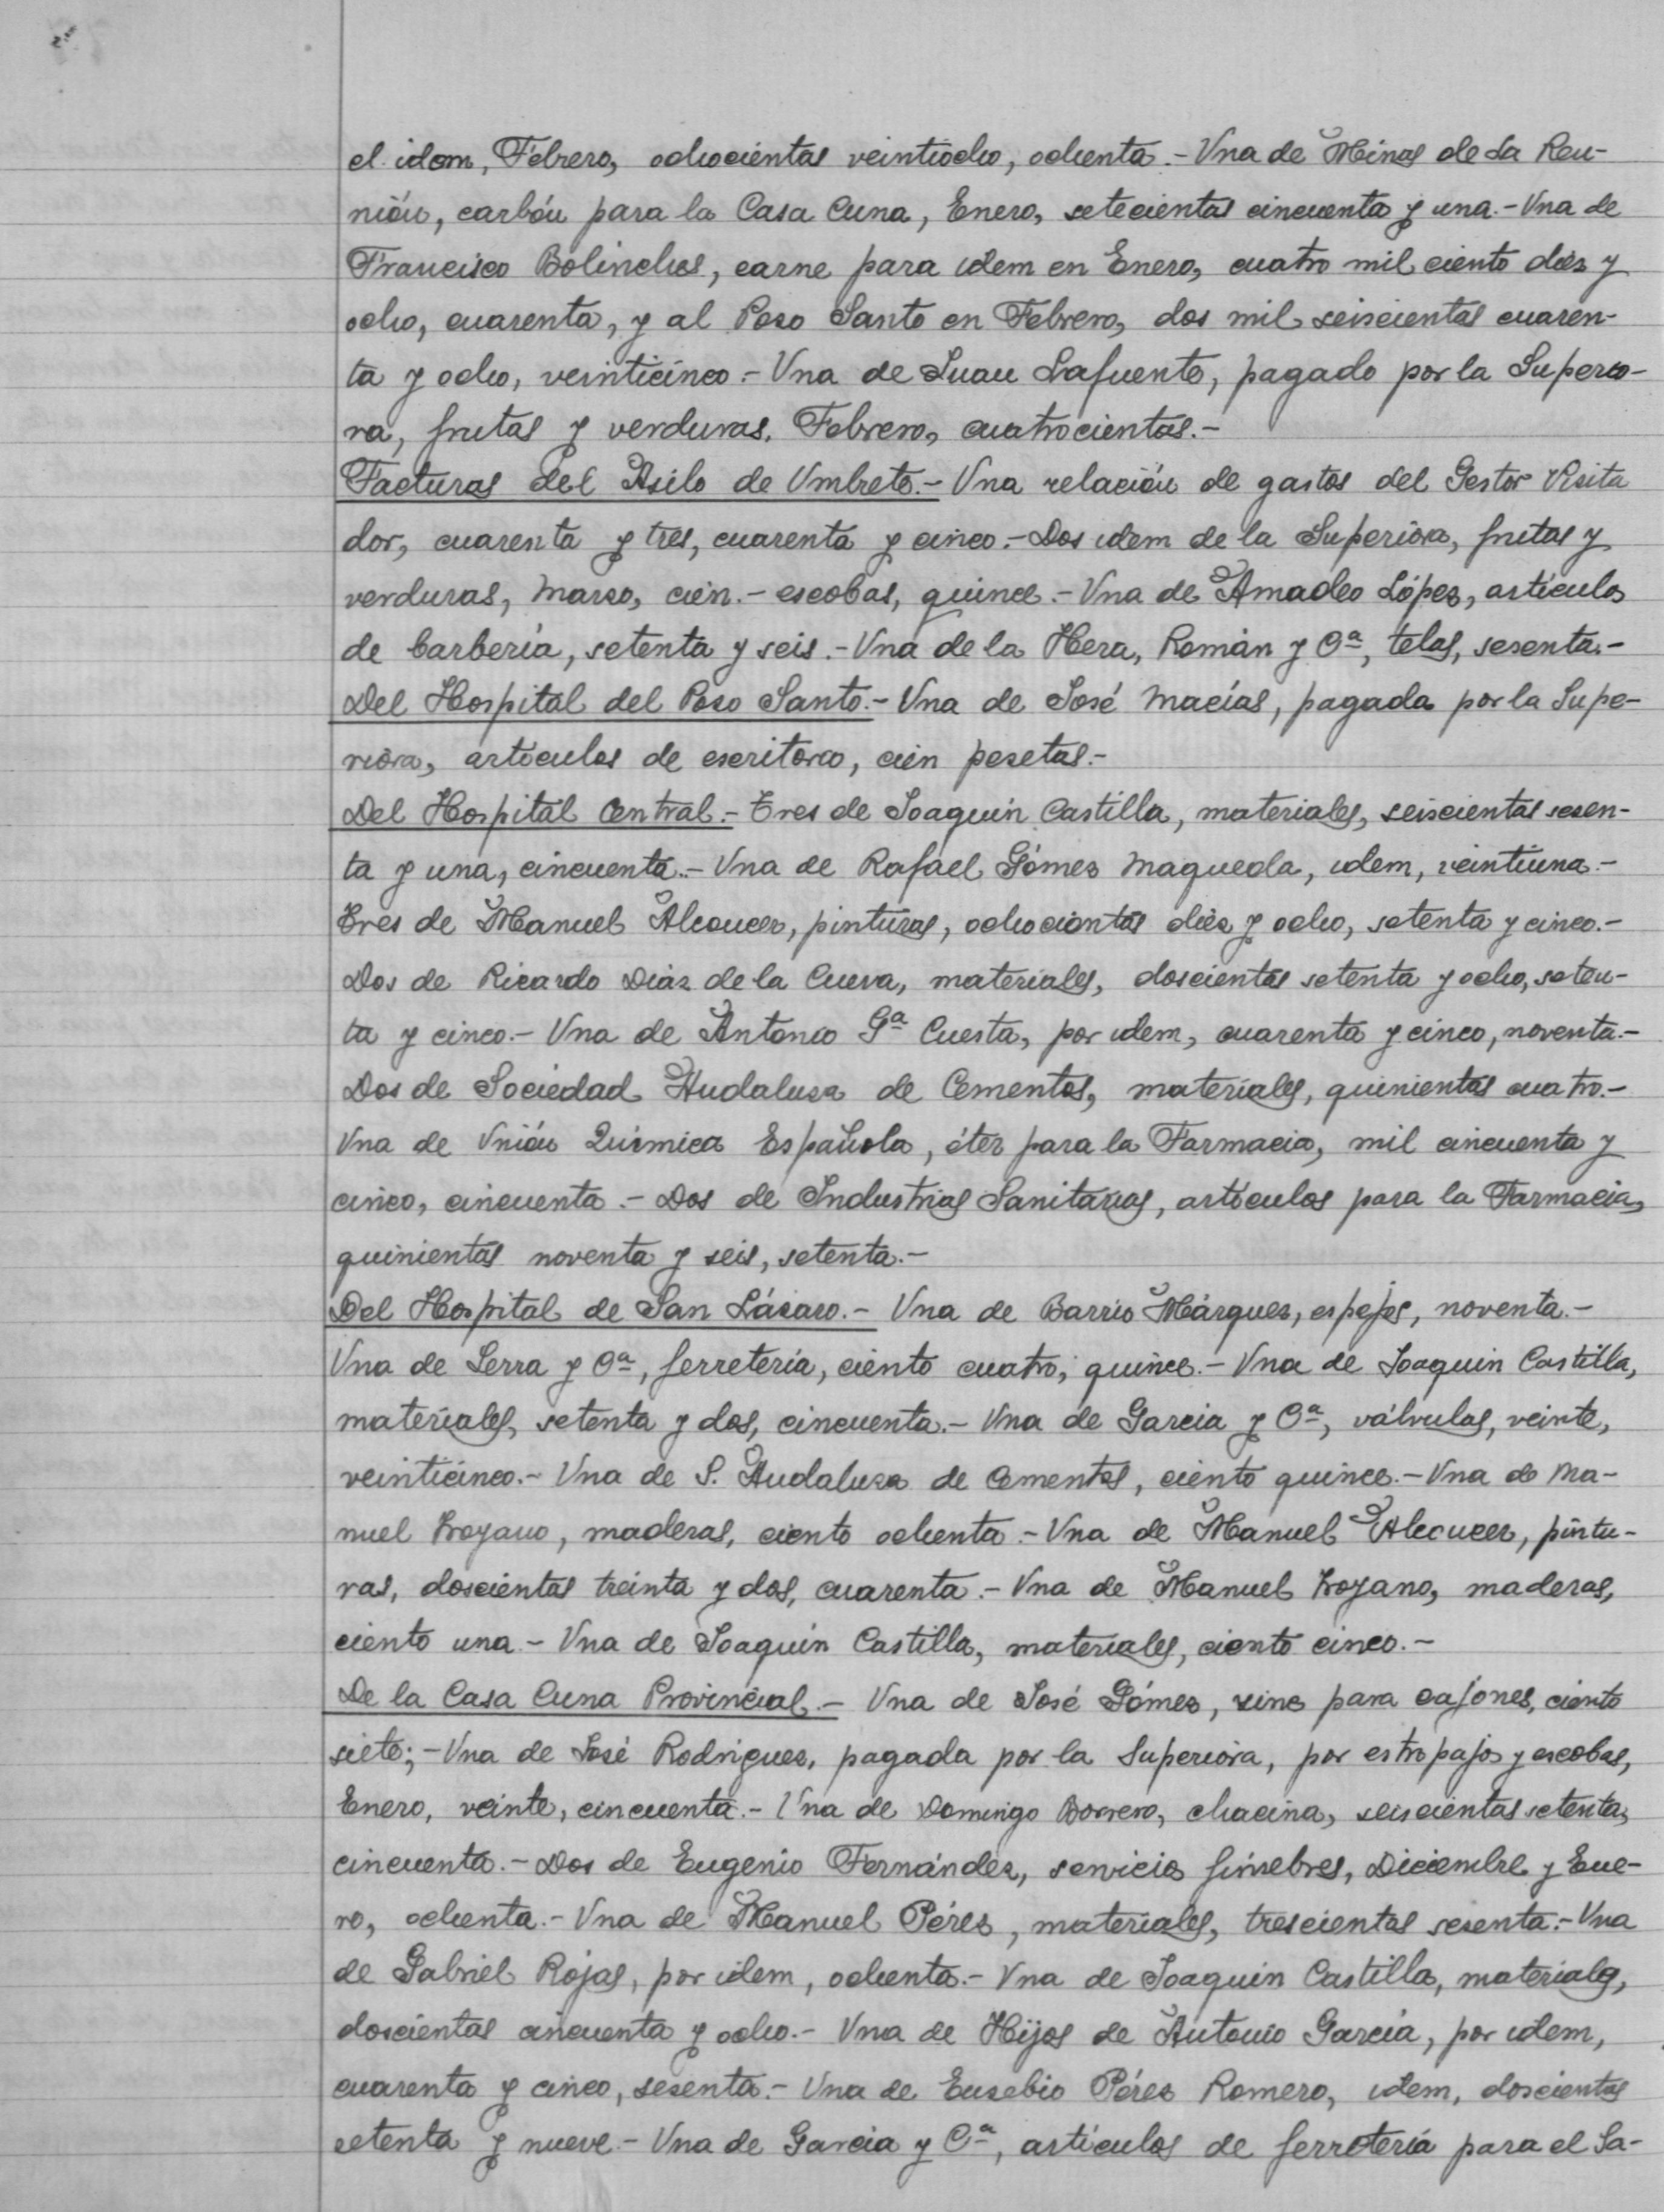 el idem, Febrero, ochocientas veintiocho, ochenta.- Una de Minas de La Reu-
nión, carbón para la Casa Cuna, Enero, setecientas cincuenta y una.- Una de
Francisco Bolinches, carne para idem en Enero, cuatro mil ciento diez y
ocho, cuarenta, y al Pozo Santo en Febrero, dos mil seiscientas cuaren-
ta y ocho, veinticinco.- Una de Juan Lafuente, pagado por la Superio-
ra, frutas y verduras, Febrero, cuatrocientas.-
Facturas del Asilo de Umbrete.- Una relación de gastos del Gestor Visita
dor, cuarenta y tres, cuarenta y cinco.- Dos idem de la Superiora, frutas y
verduras, Marzo, cien.- escobas, quince.- Una de Amadeo López, artículos
de barbería, setenta y seis.- Una de la Hera, Román y Cª, telas, sesenta.-
Del Hospital del Pozo Santo.- Una de José Macías, pagada por la Supe-
riora, artículos de escritorio, cien pesetas.-
Del Hospital Central.- Tres de Joaquin Castilla, materiales, seiscientas sesen-
ta y una, cincuenta.- Una de Rafael Gómez Maqueda, idem, veintiuna.-
Tres de Manuel Alcoucer, pinturas, ochocientas diez y ocho, setenta y cinco.-
Dos de Ricardo Diaz de la Cueva, materiales, doscientas setenta y ocho, seten-
ta y cinco.- Una de Antonio Gª Cuesta, por idem, cuarenta y cinco, noventa.-
Dos de Sociedad Andaluza de Cementos, materiales, quinientas cuatro.-
Una de Unión Química Española, éter para la Farmacia, mil cincuenta y
cinco, cincuenta.- Dos de Industrias Sanitarias, artículos para la Farmacia,
quinientas noventa y seis, setenta.-
Del Hospital de San Lázaro.- Una de Barrio Márquez, espejos, noventa.-
Una de Serra y Cª, ferretería, ciento cuatro, quince.- Una de Joaquin Castilla,
materiales, setenta y dos, cincuenta.- Una de Garcia y Cª, válvulas, veinte,
veinticinco.- Una de S. Andaluza de Cementos, ciento quince.- Una de Ma-
nuel Troyano, maderas, ciento ochenta.- Una de Manuel Alcoucer, pintu-
ras, doscientas treinta y dos, cuarenta.- Una de Manuel Troyano, maderas,
ciento una.- Una de Joaquín Castilla, materiales, ciento cinco.-
De la Casa Cuna Provincial.- Una de José Gómez, zinc para cajones, ciento
siete;- Una de José Rodriguez, pagada por la Superiora, por estropajos y escobas,
Enero, veinte, cincuenta.- Una de Domingo Borrero, chacina, seiscientas setenta,
cincuenta.- Dos de Eugenio Fernández, servicios fúnebres, Diciembre y Ene-
ro, ochenta.- Una de Manuel Pérez, materiales, trescientas sesenta.- Una
de Gabriel Rojas, por idem, ochenta.- Una de Joaquin Castilla, materiales,
doscientas cincuenta y ocho.- Una de Hijos de Antonio Garcia, por idem,
cuarenta y cinco, sesenta.- Una de Eusebio Pérez Romero, idem, doscientas
setenta y nueve.- Una de Garcia y Cª, artículos de ferretería para el Sa-